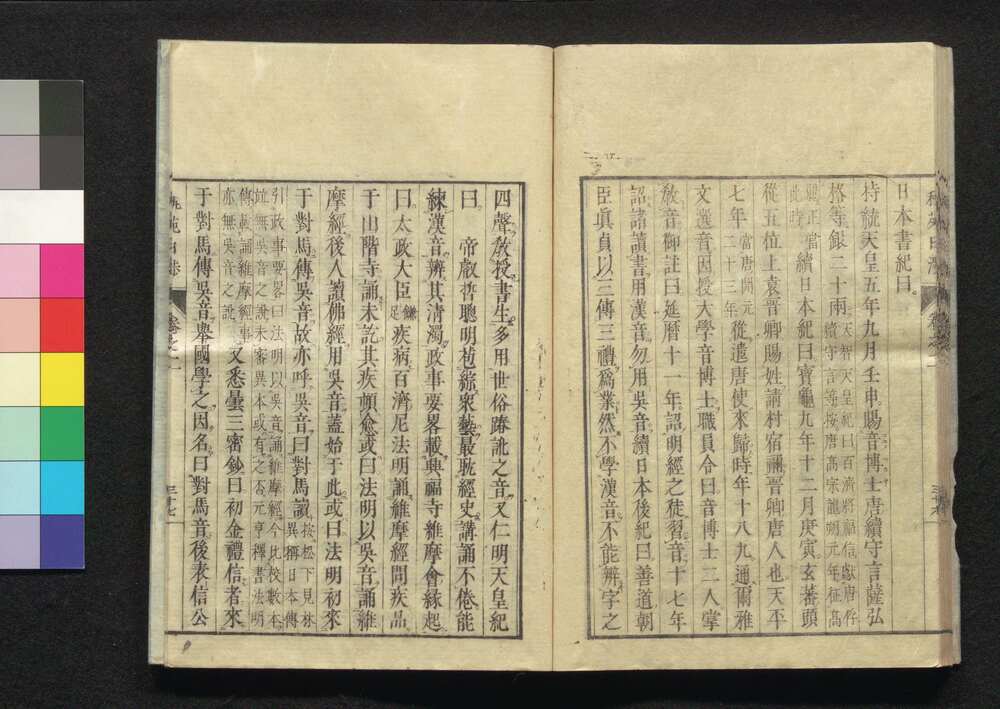 日本書紀曰
持統天皇五年九月壬申賜音博士唐續守言薩弘
恪等銀二十兩天智天皇紀曰百濟將福信獻唐俘續守言等按唐高宗龍朔元年征高
麗正當此時續日本紀曰寶龜九年十二月庚寅玄蕃頭
從五位上袁晋卿賜姓請村宿禰晋卿唐人也天平
七年當唐開元二十三年從遣唐使來歸時年十八九通爾雅
文選音因授大學音博士職員令曰音博士二人掌
敎音御註曰延曆十一年詔明經之徒習音十七年
詔諸讀書用漢音勿用吳音續日本後紀曰善道朝
臣眞貞以三傳三禮爲業然不學漢音不能辨字之
四聲敎授書生多用世俗踳訛之音又仁明天皇紀
曰帝叡哲聰明苞綜衆藝最耽經史講誦不倦能
練漢音辨其清濁政事要畧載興福寺維摩會緣起
曰太政大臣鎌足疾病百濟尼法明誦維摩經問疾品
于山階寺誦未訖其疾頓愈或曰法明以吳音誦維
摩經後人讀佛經用吳音蓋始于此或曰法明初來
于對馬傳吳音故亦呼吳音曰對馬讀按松下見林異稱日本傳
引政事要畧曰法明以吳音誦維摩經今比挍數本竝無吳音之說未審異本或有之否元亨釋書法明
傳載誦維摩經事亦無吳音之說又悉曇三密鈔曰初金禮信者來
于對馬傳吳音舉國學之因名曰對馬音後表信公
卷之一